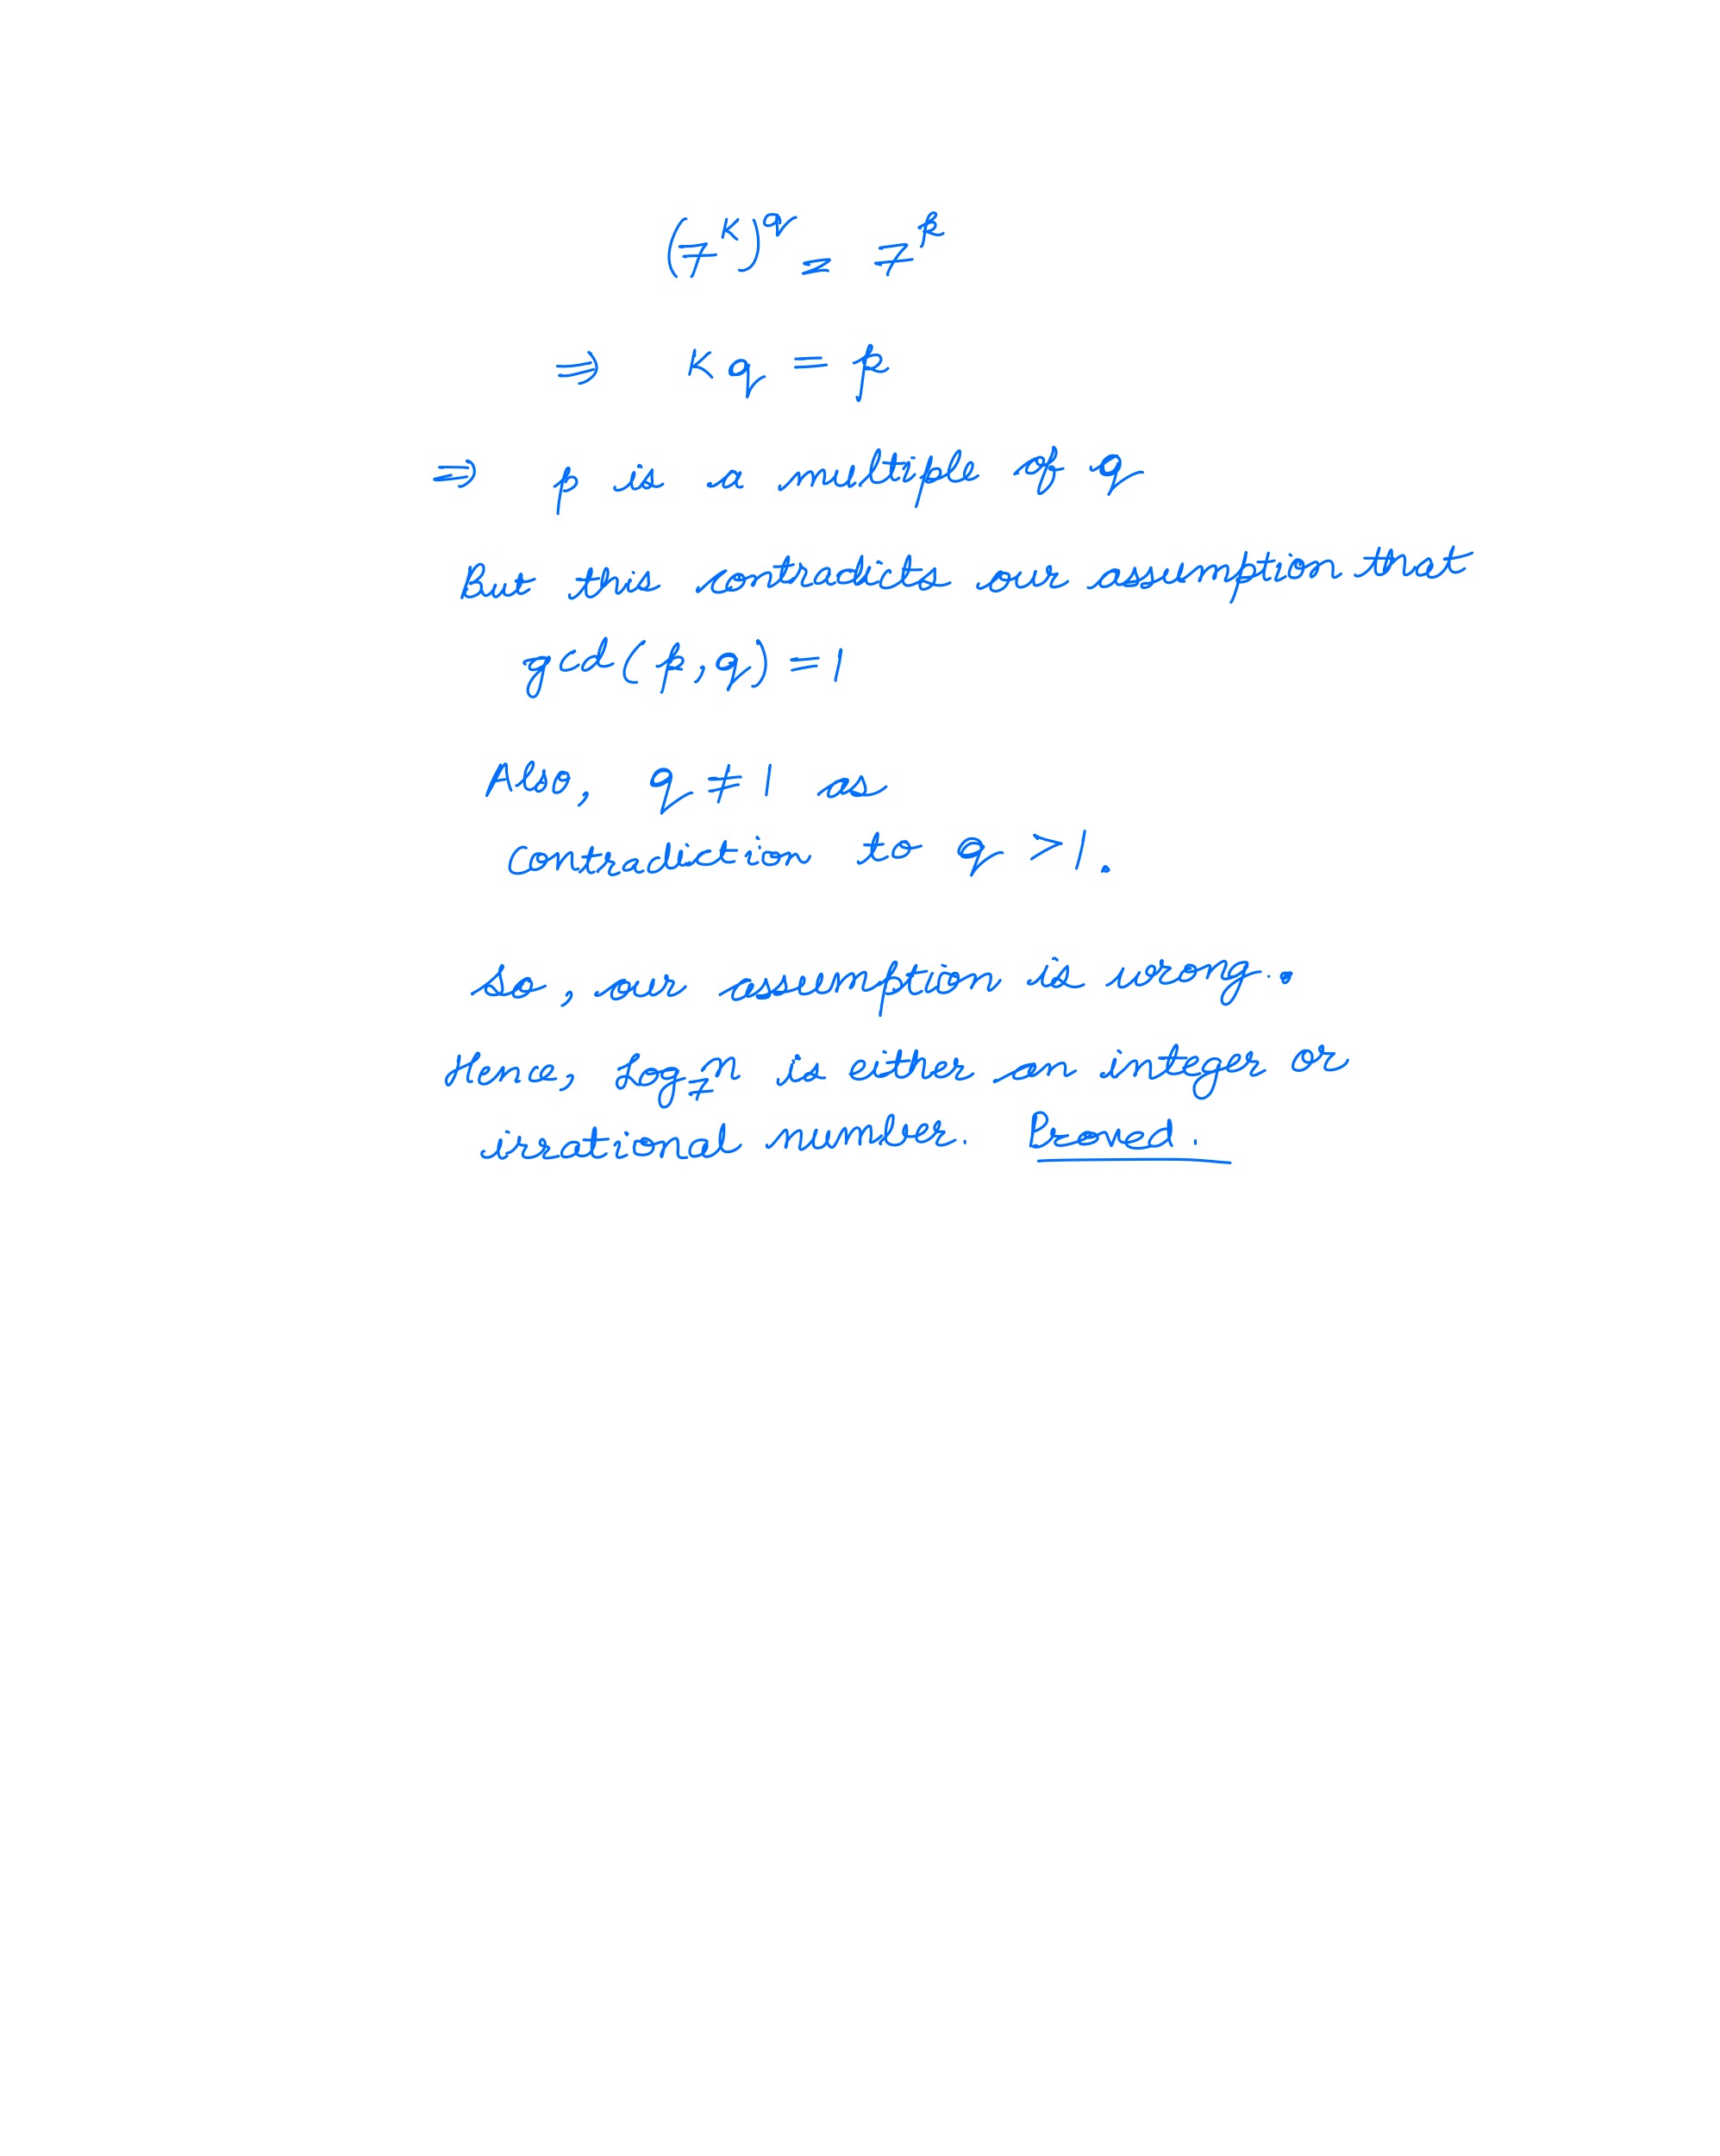 (7^K)^q = 7^p
⇒ Kq = p
⇒ p is a multiple of q
But this contradicts our assumption that
gcd(p,q) = 1
Also, q ≠ 1 as
Contradiction to q > 1.
So, our assumption is wrong..
Hence, log_7 n is either an integer or
irrational number. Proved.